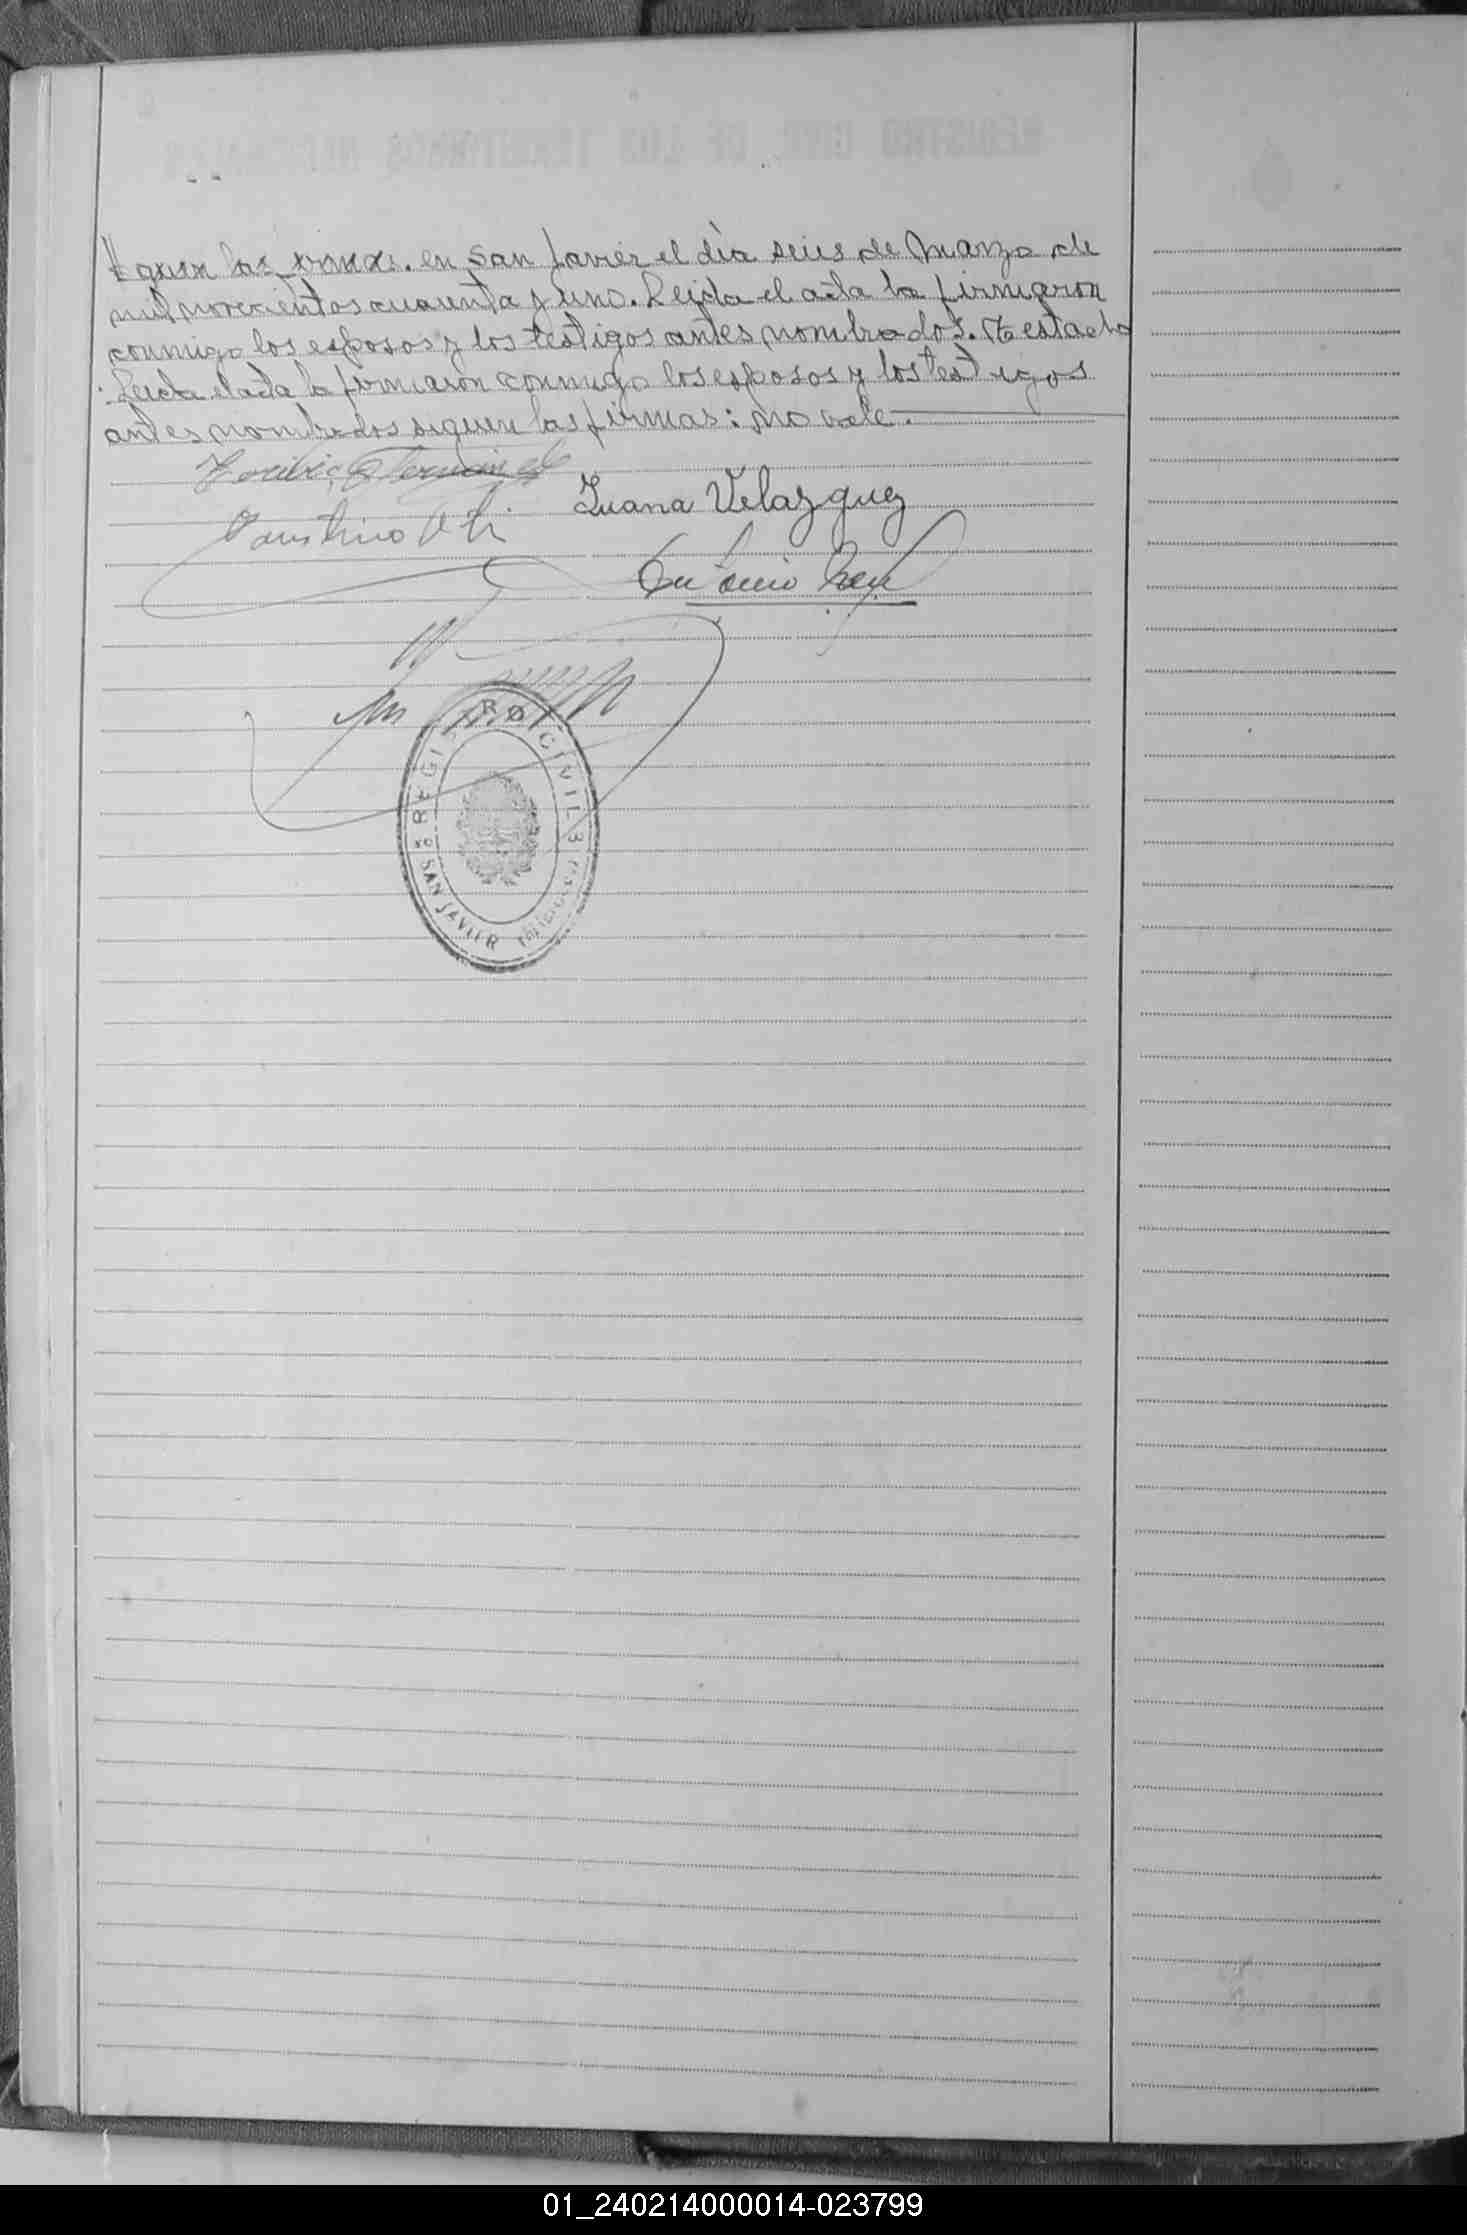 las en San Javier el dia seis de Marzo de
mil novecientos cuarenta y uno. Leida el acta la firmaron
conmigo los esposos y los testigos antes nombrados. Testado
: Leida el acta la firmaron conmigo los esposos y los testigos
antes nombrados siguen las firmas: no vale.
Toribio
Juana Velazquez
Faustino
Antonio
REGISTRO CIVIL
SAN JAVIER
01_240214000014-023799